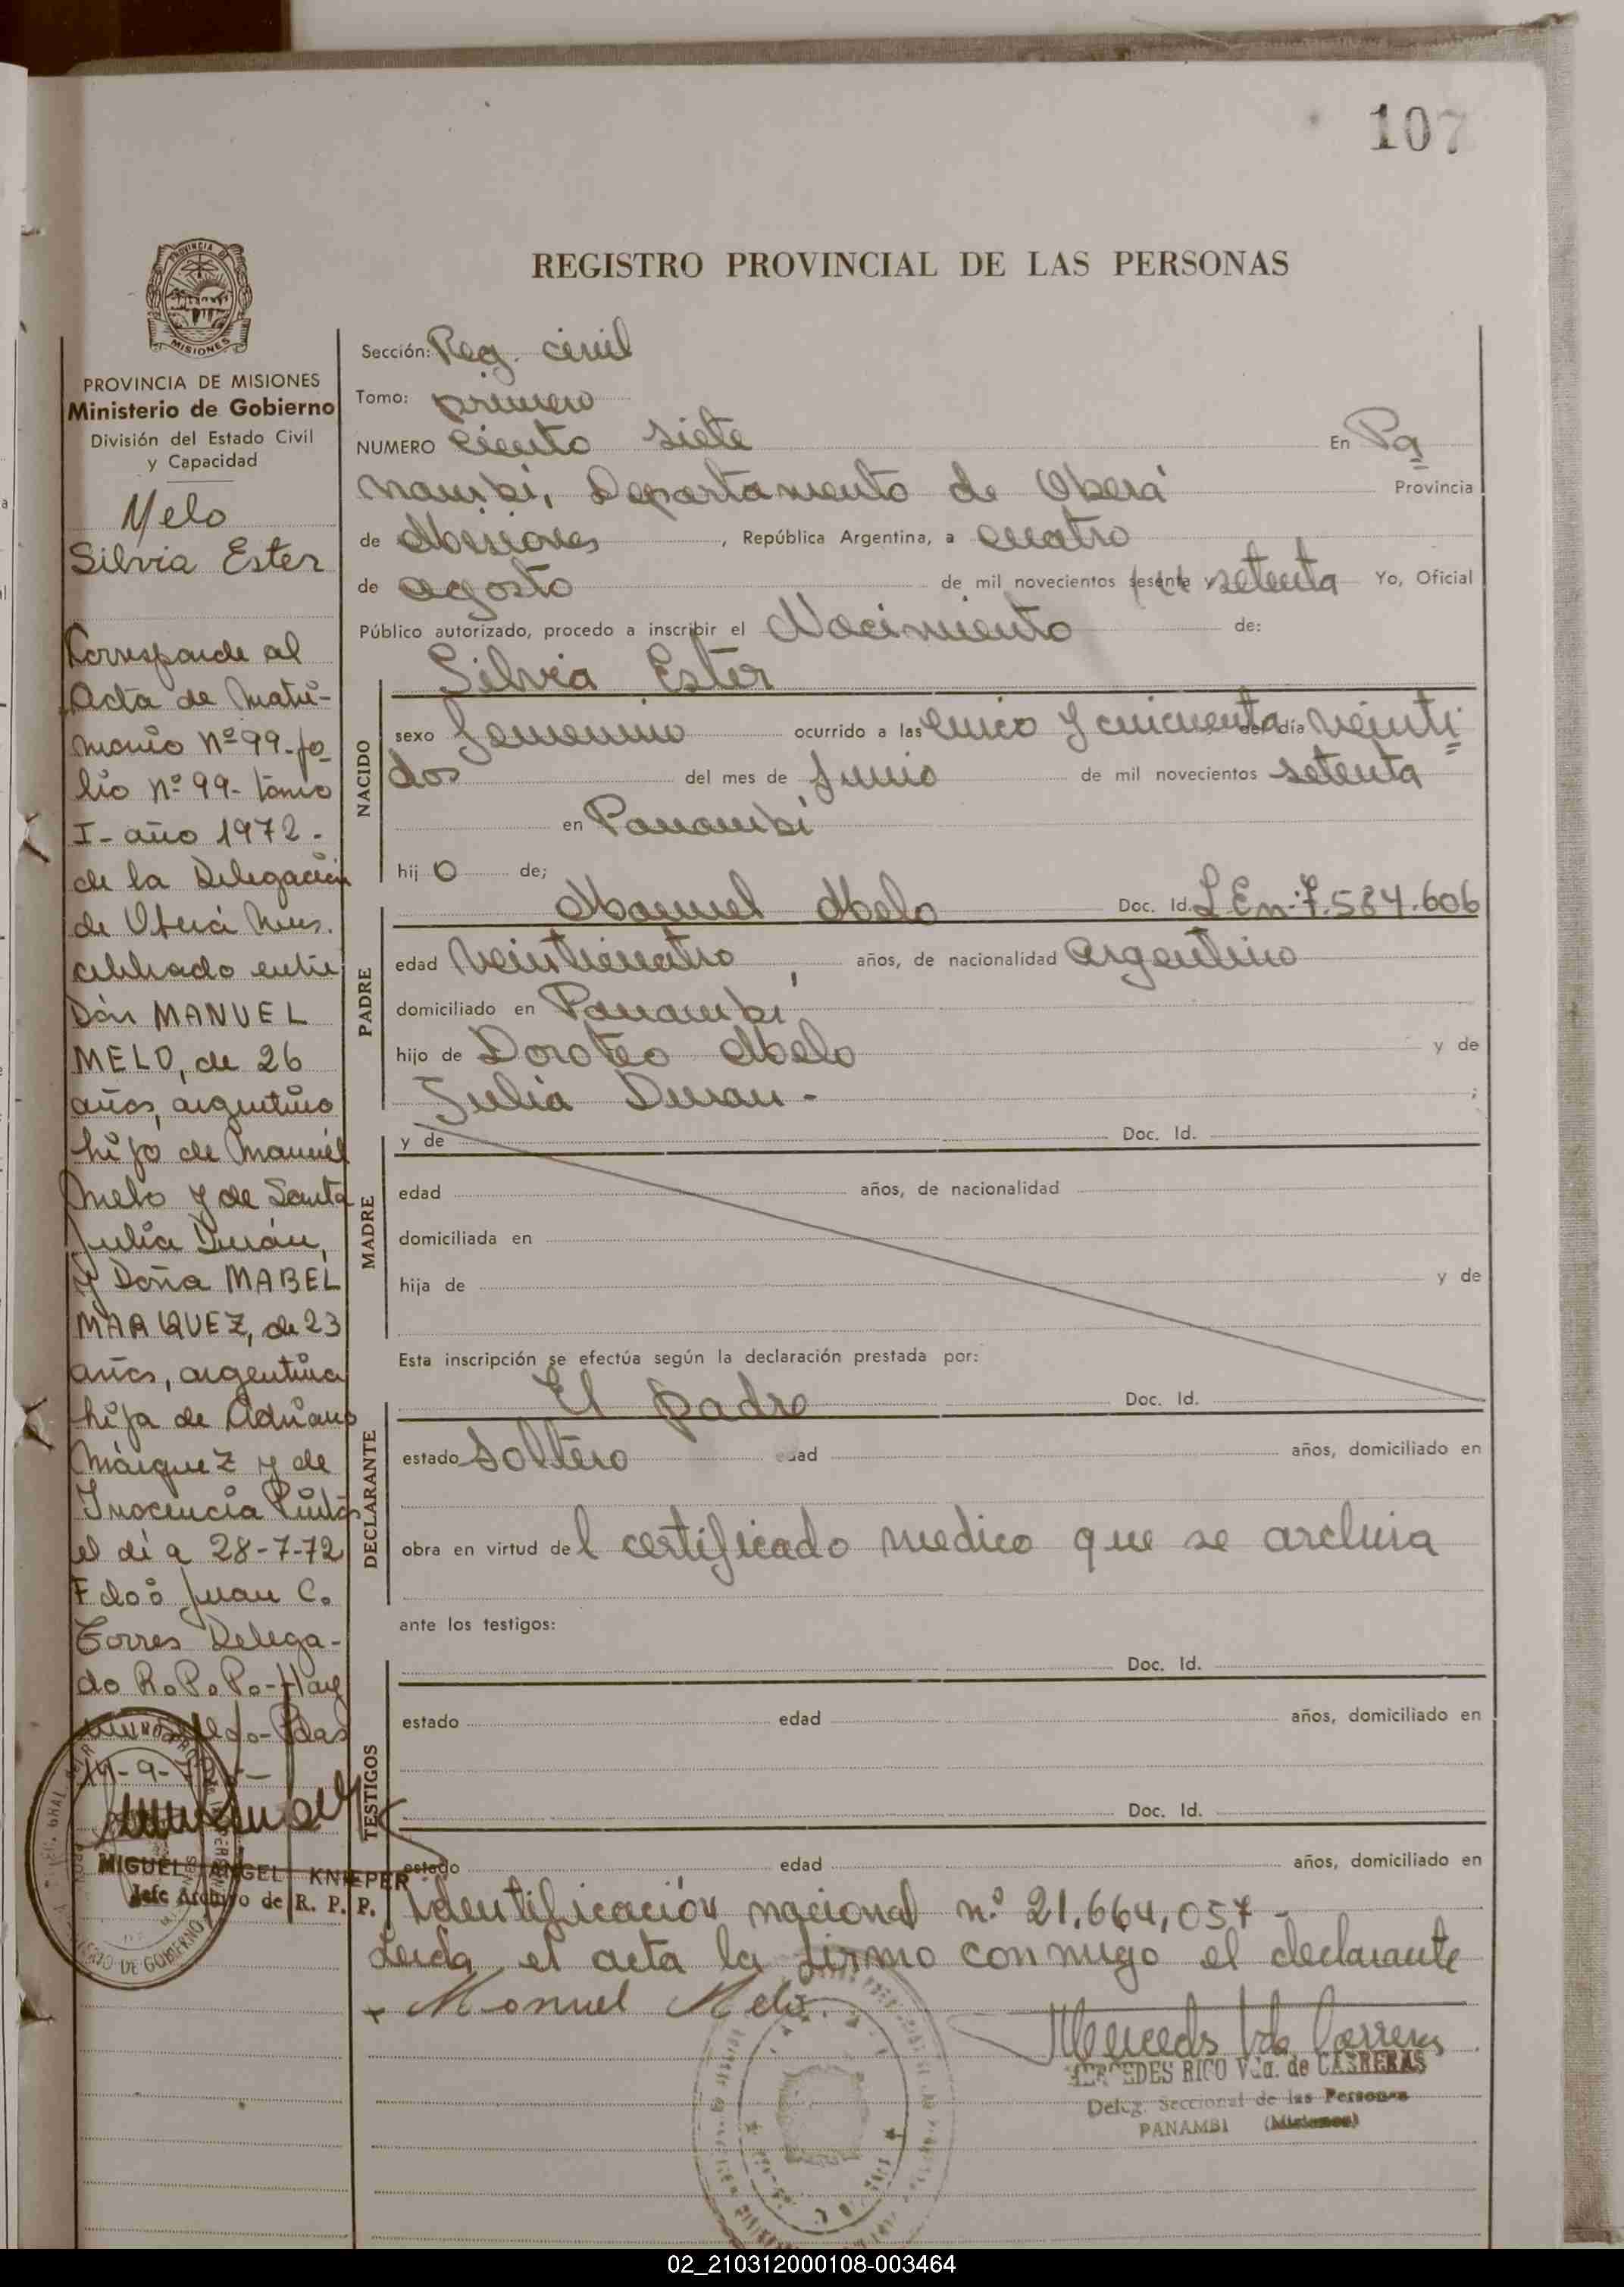 107
REGISTRO PROVINCIAL DE LAS PERSONAS
MISIONES
PROVINCIA DE MISIONES
Ministerio de Gobierno
División del Estado Civil
y Capacidad
Melo
Silvia Ester
Corresponde al
Acta de Matri-
monio Nº 99-fo
lio Nº 99- tomo
I- año 1972-
de la Delegación
de Oberá Mnes.
celebrado entre
Don MANUEL
MELO, de 26
años, argentino
hijo de Manuel
Melo y de Santa
Julia Durán,
y Doña MABEL
MARQUEZ, de 23
años, argentina
hija de Adriano
Márquez y de
Inocencia
el día 28-7-72
Fdo: Juan C.
Torres Delega-
do R.P.P.- Hay
14-9-72-
MIGUEL ANGEL KNIEPER
Jefe Archivo de R. P. P.
Sección: Reg. civil
Tomo: primero
NUMERO ciento siete En Pa
nambi, Departamento de Oberá Provincia
de Misiones, República Argentina, a cuatro
de agosto de mil novecientos sesenta y setenta Yo, Oficial
Público autorizado, procedo a inscribir el Nacimiento de:
Silvia Ester
NACIDO
sexo femenino ocurrido a las cinco y cincuenta del día veinti
dos del mes de Junio de mil novecientos setenta
en Panambi
hij o de;
PADRE
Manuel Melo Doc. Id. L.E.nº 7.584.606
edad veinticuatro, años, de nacionalidad argentino
domiciliado en Panambi
hijo de Doroteo Melo y de
Julia Duran- ;
MADRE
y de Doc. Id.
edad años, de nacionalidad
domiciliada en
hija de y de
Esta inscripción se efectúa según la declaración prestada por:
DECLARANTE
El padre Doc. Id.
estado soltero edad años, domiciliado en
obra en virtud del certificado medico que se archiva
ante los testigos:
TESTIGOS
Doc. Id.
estado edad años, domiciliado en
Doc. Id.
estado edad años, domiciliado en
Identificación nacional n.º 21.664,057-
Leida el acta la firmo conmigo el declarante
Manuel Melo.
Mercedes Vda Carreras
MERCEDES RICO Vda. de CARRERAS
Deleg. Seccional de las Personas
PANAMBI (Misiones)
02_210312000108-003464